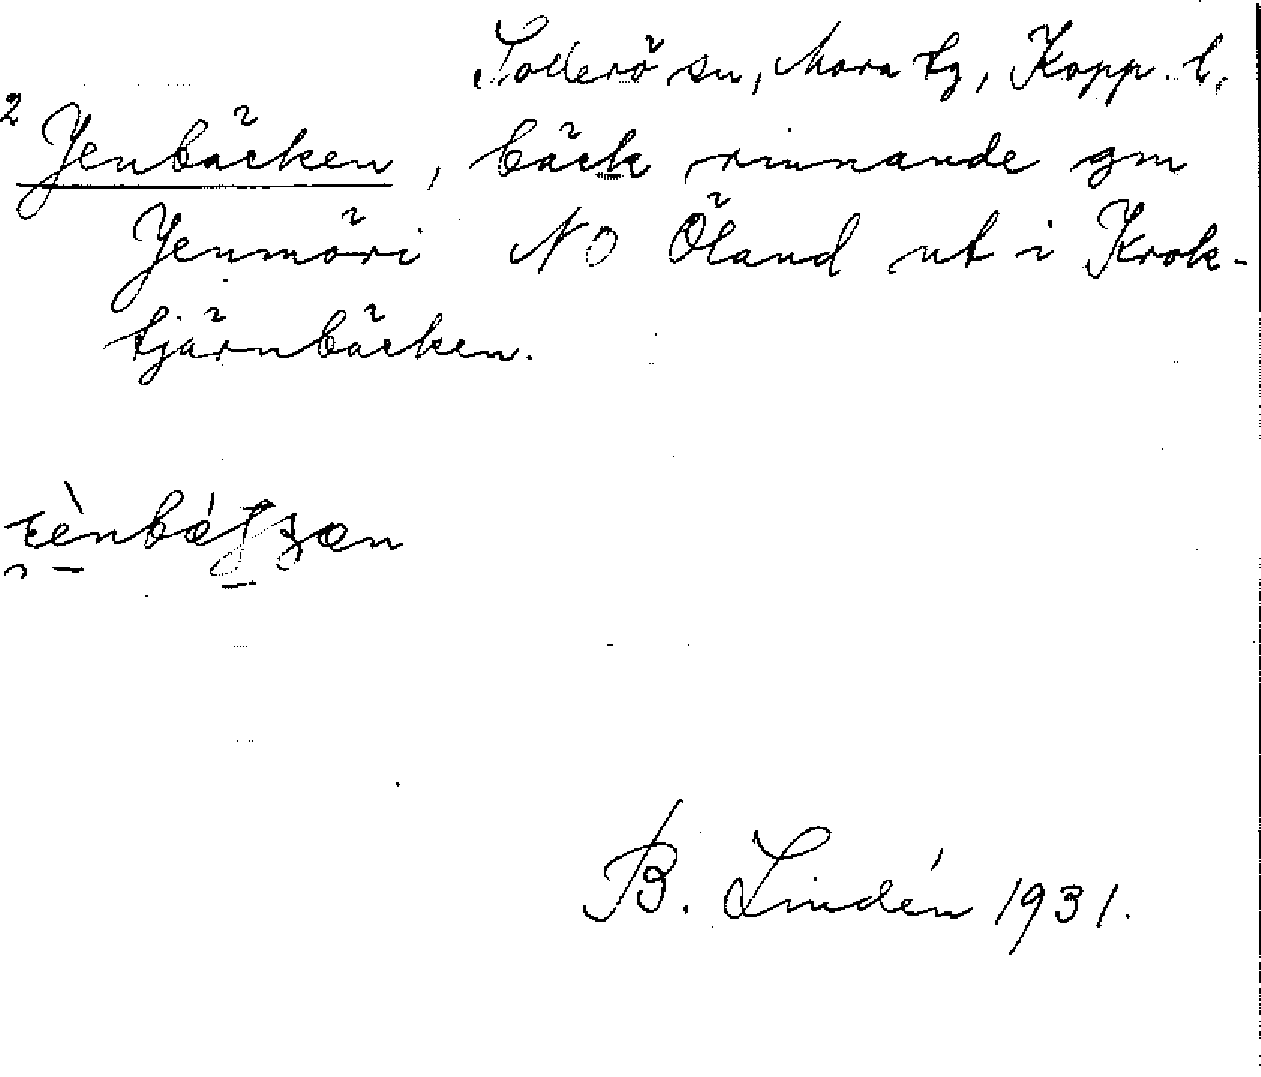 Sollerö sn, Mora tg, Kopp. l.
2 Yenbäcken, bäck rinnande gm
Yenmöri NO Öland ut i Krok-
tjärnbäcken.
B. Lindén 1931.